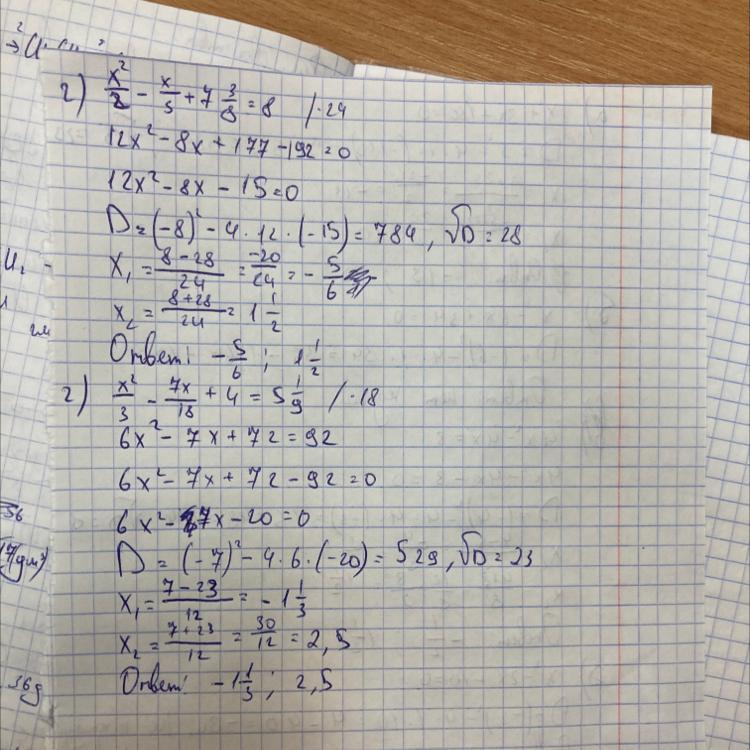 2) x²/2 - x/3 + 7 3/8 = 8 /·24
12x² - 8x + 177 - 192 = 0
12x² - 8x - 15 = 0
D = (-8)² - 4 · 12 · (-15) = 784, √D = 28
x₁ = (8 - 28)/24 = -20/24 = - 5/6
x₂ = (8 + 28)/24 = 1 1/2
Ответ: - 5/6 ; 1 1/2
2) x²/3 - 7x/18 + 4 = 5 1/9 /·18
6x² - 7x + 72 = 92
6x² - 7x + 72 - 92 = 0
6x² - 7x - 20 = 0
D = (-7)² - 4 · 6 · (-20) = 529, √D = 23
x₁ = (7 - 23)/12 = - 1 1/3
x₂ = (7 + 23)/12 = 30/12 = 2,5
Ответ: - 1 1/3 ; 2,5